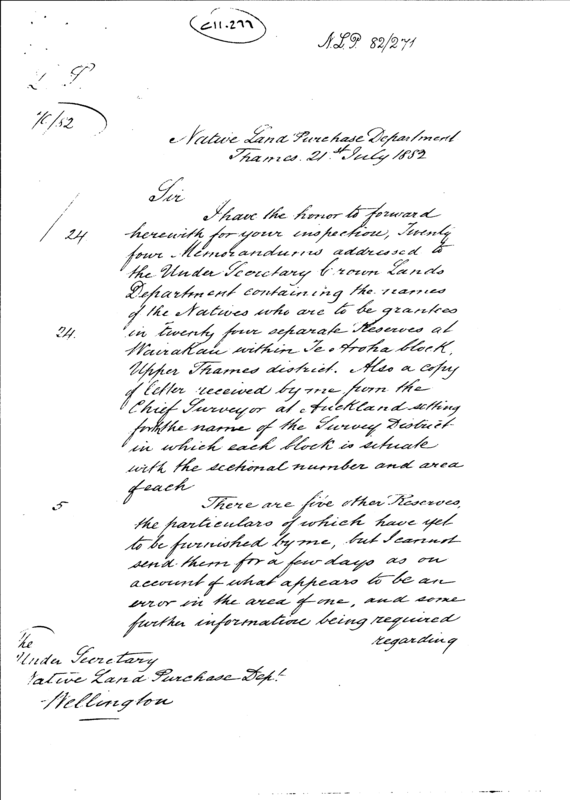 C11-277
N.L.P. 82/271
L P.
Native Land Purchase Department
Thames. 21st July 1882
Sir
I have the honor to forward
24 herewith for your inspection, Twenty
four Memorandums addressed to
the Under Secretary Crown Lands
Department containing the names
of the Natives who are to be grantees
24. in twenty four separate Reserves at
Wairakau within Te Aroha block,
Upper Thames district. Also a copy
of letter received by me from the
Chief Surveyor at Auckland setting
forth the name of the Survey District
in which each block is situate
with the sectional number and area
of each
5 There are five other Reserves,
the particulars of which have yet
to be furnished by me, but I cannot
send them for a few days as on
account of what appears to be an
error in the area of one, and some
further information being required
regarding
The
Under Secretary
Native Land Purchase Dept.
Wellington